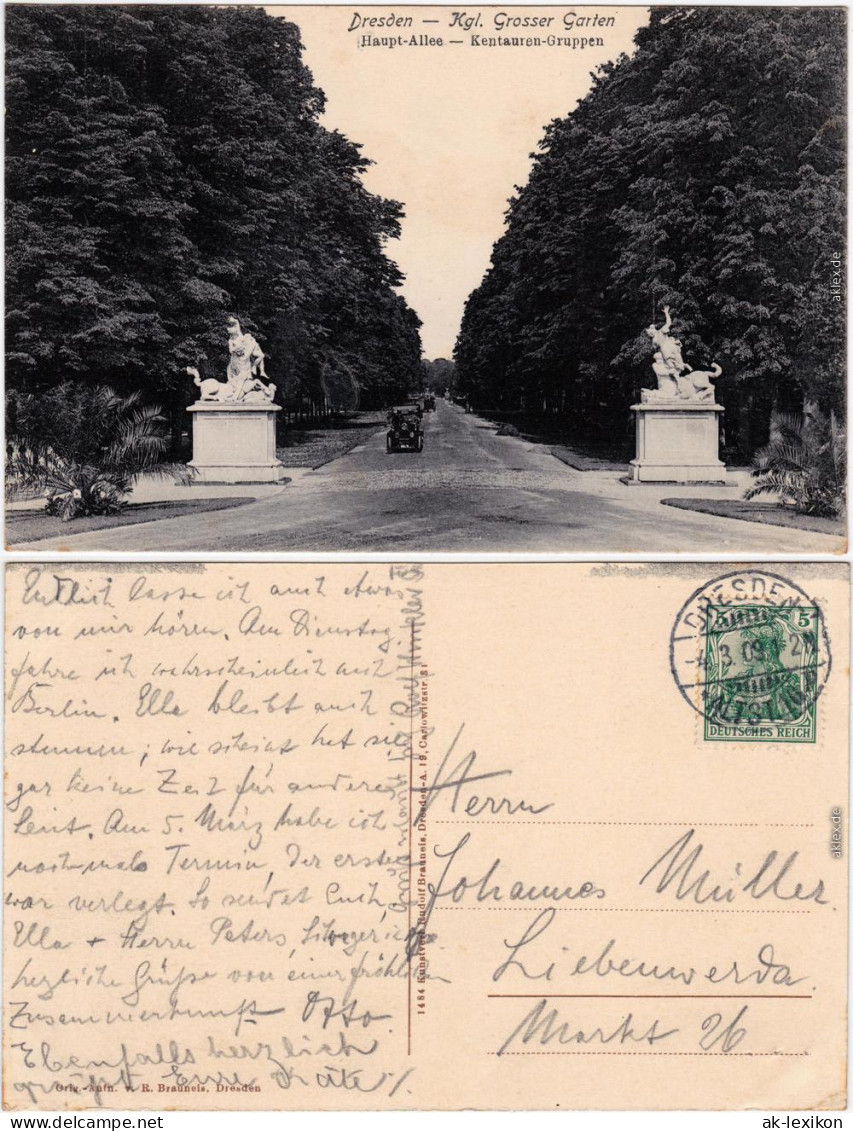 Dresden — Kgl. Grosser Garten
Haupt-Allee — Kentauren-Gruppen
aklex.de
Endlich lasse ich auch etwas
von mir hören. Am Dienstag
fahre ich wahrscheinlich nach
Berlin. Ella bleibt auch
stumm; wie scheint hat sie
gar keine Zeit für andere
Leut. Am 5. März habe ich
nochmals Termin, der erste
war verlegt. So sendet Euch,
Ella + Herrn Peters,
herzliche Grüße von einer fröhlichen
Zusammenkunft Otto
Ebenfalls herzlich
grüßt Eure Käte
Orig.-Aufn. v. R. Brauneis, Dresden
1484 Kunstverl. Rudolf Brauneis, Dresden-A. 19, Carlowitzstr. 31
DRESDEN
4.3.09
ALTST.
5 5
DEUTSCHES REICH
Herrn
Johannes Müller
Liebenwerda.
Markt 26
aklex.de
www.delcampe.net
ak-lexikon